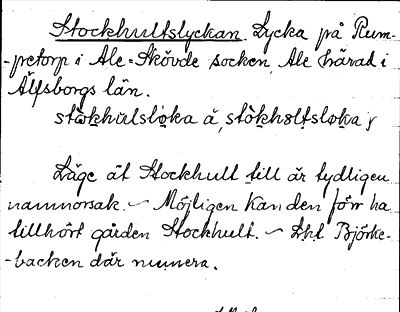 Stockhultslyckan. Lycka på Rum-
-petorp i Ale-Skövde socken, Ale härad i
Älfsborgs län.
Läge åt Stockhult till är tydligen
namnorsak. ~ Möjligen kan den förr ha
tillhört gården Stockhult. ~ Björke-
-backen där numera.